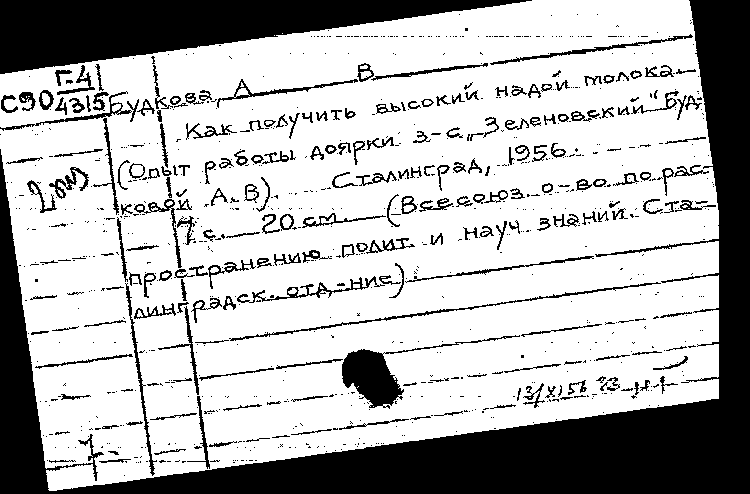 Г-4
С90 4315 Будкова, А В
Как получить высокий надой молока.
(Опыт работы доярки з-са „Зеленовский" Буд-
ковой А.В). Сталинград, 1956.
7 с. 20 см. (Всесоюз. о-во по рас-
пространению полит. и науч знаний. Ста-
линградск. отд-ние).